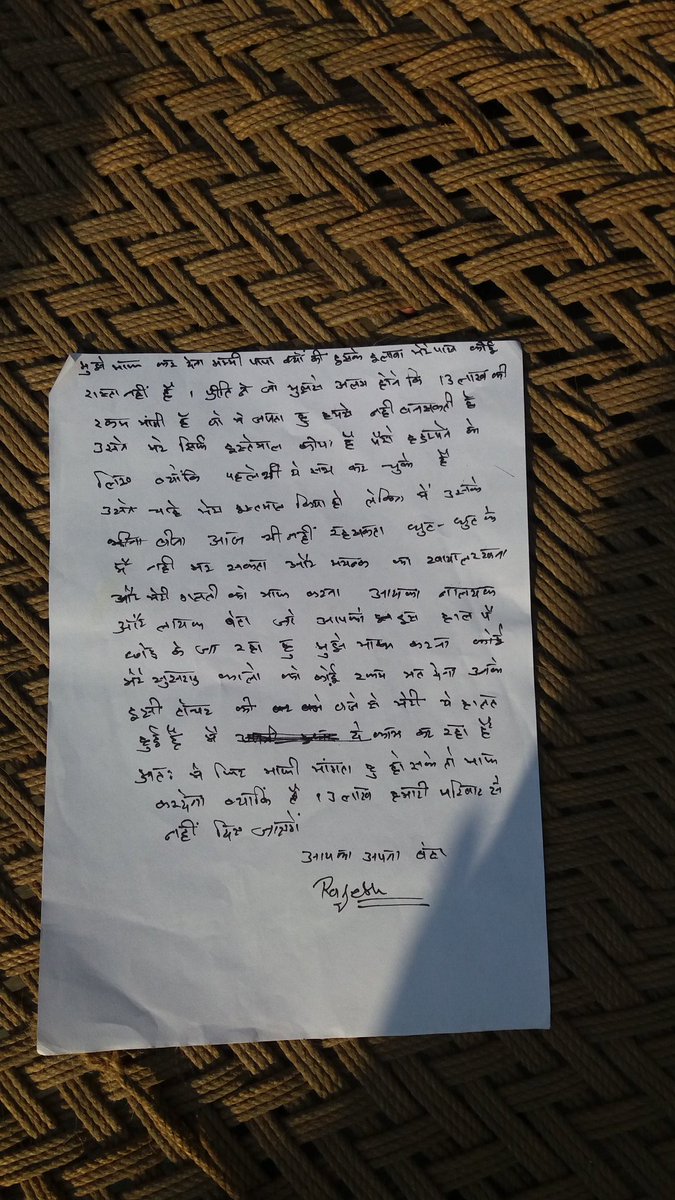 मुझे माफ कर देना मम्मी पापा क्यों की इसके इलावा मेरे पास कोई
रास्ता नहीं है । प्रीति ने जो मुझसे अलग होने कि 13 लाख की
रकम मांगी है वो मे जानता हु हमसे नही बनसकती है
उसने मेरे सिर्फ इस्तेमाल कीया है पैसे हडपने के
लिए क्योंकि पहले भी ये सब कर चुके है
उसने चाहे मेरा इस्तमाल किया हो लेकिन में उसके
बीना जीना आज भी नहीं सकता घुट-घुट के
मैं नही मर सकता और मयंक का ख्याल रखना
और मेरी गलती को माफ करना आपका नालायक
और लायक बेटा जो आपको इस हाल में
छोड के जा रहा हु मुझे माफ करना कोई
मेरे सुसराल वालो को कोई रकम मत देना उनके
इसी की वजे से मेरी ये हालत
हुई है मै ये काम कर रहा हैं
अतः मे फिर माफी मांगता हु हो सके तो माफ
करदेना क्योंकि है 13 लाख हमारी परिवार से
नहीं दिए जायेगें
आपका अपना बेटा
Rajesh